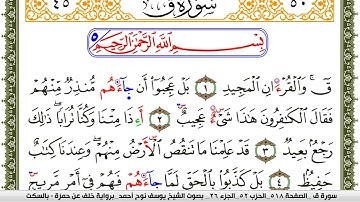 ٤٥ سورة ق ٥٠
بِسْمِ اللَّهِ الرَّحْمَٰنِ الرَّحِيمِ
قٓ ۚ وَالْقُرْءَانِ الْمَجِيدِ ١ بَلْ عَجِبُوٓا۟ أَن جَآءَهُم مُّنذِرٌ مِّنْهُمْ
فَقَالَ الْكَٰفِرُونَ هَٰذَا شَىْءٌ عَجِيبٌ ٢ أَءِذَا مِتْنَا وَكُنَّا تُرَابًا ۖ ذَٰلِكَ
رَجْعٌۢ بَعِيدٌ ٣ قَدْ عَلِمْنَا مَا تَنقُصُ الْأَرْضُ مِنْهُمْ ۖ وَعِندَنَا كِتَٰبٌ
حَفِيظٌۢ ٤ بَلْ كَذَّبُوا۟ بِالْحَقِّ لَمَّا جَآءَهُمْ فَهُمْ فِىٓ أَمْرٍ مَّرِيجٍ
سورة ق_ الصفحة ٥١٨_ الحزب ٥٢_ الجزء ٢٦_ بصوت الشيخ يوسف نوح أحمد_ برواية خلف عن حمزة - بالسكت